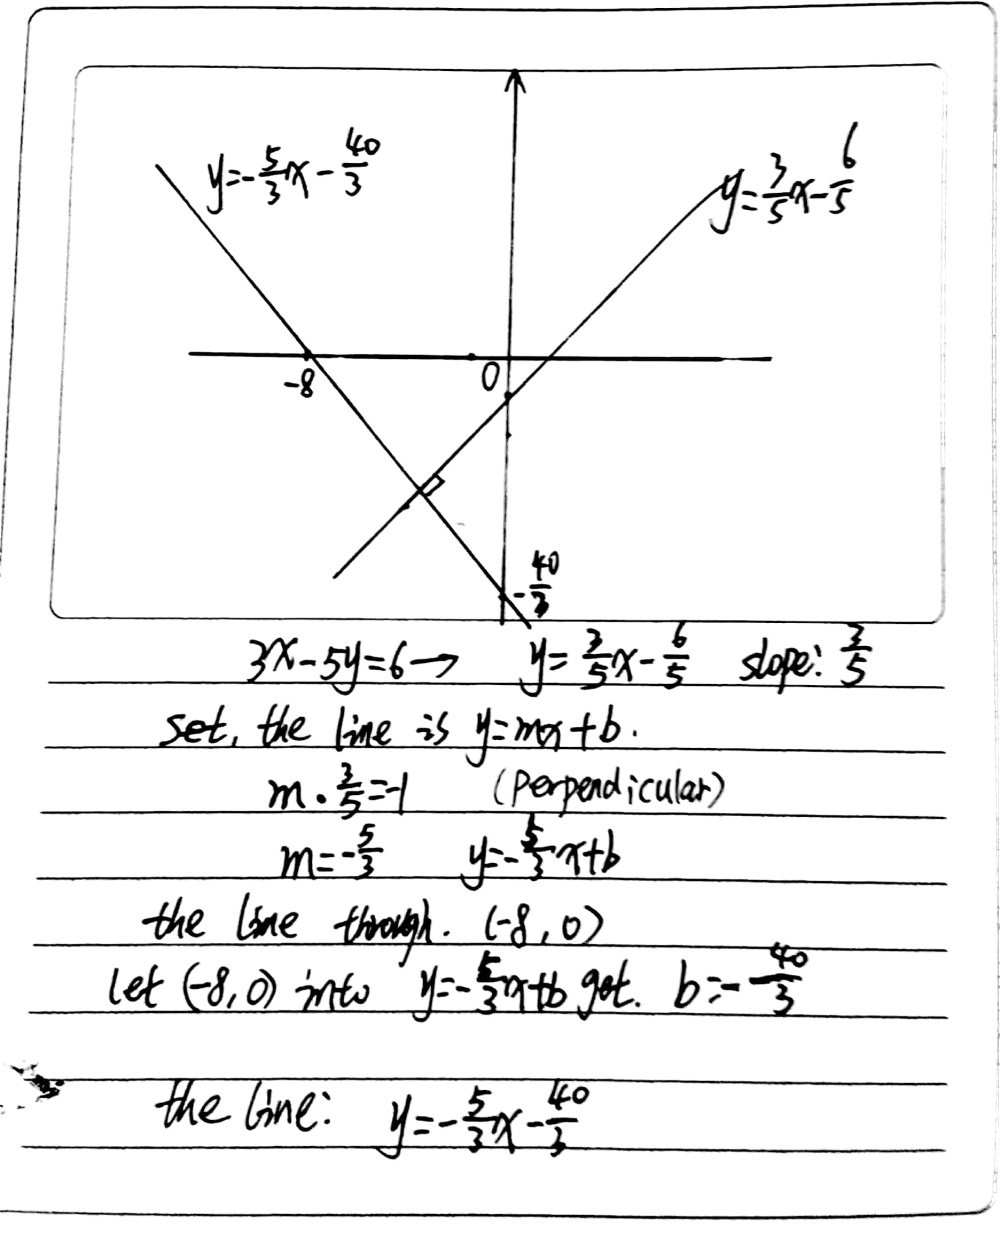 y=-5/3x-40/3
y=3/5x-6/5
-8
0
-40/3
3x-5y=6→ y=3/5x-6/5 slope: 3/5
set, the line is y=mx+b.
m·3/5=-1 (Perpendicular)
m=-5/3 y=-5/3x+b
the line through. (-8,0)
let (-8,0) into y=-5/3x+b get. b=-40/3
the line: y=-5/3x-40/3